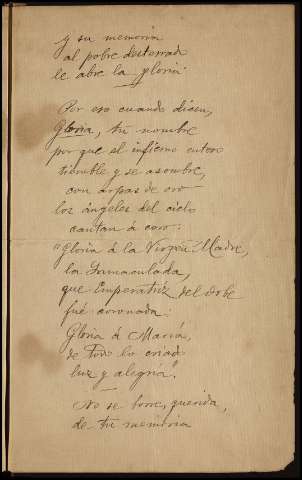 y su memoria
al pobre desterrado
le abre la gloria
Por eso cuando dicen,
Gloria, tu nombre
por que el infierno entero
tiemble y se asombre,
con arpas de oro
los ángeles del cielo
cantan á coro:
"Gloria á la Virgen Madre,
la Inmaculada,
que Emperatriz del orbe
fué coronada:
Gloria á Maria,
de Todo lo criado
luz y alegria".
No se borre, querida,
de tu memoria